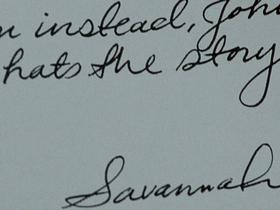 instead, John
hats the story
Savannah